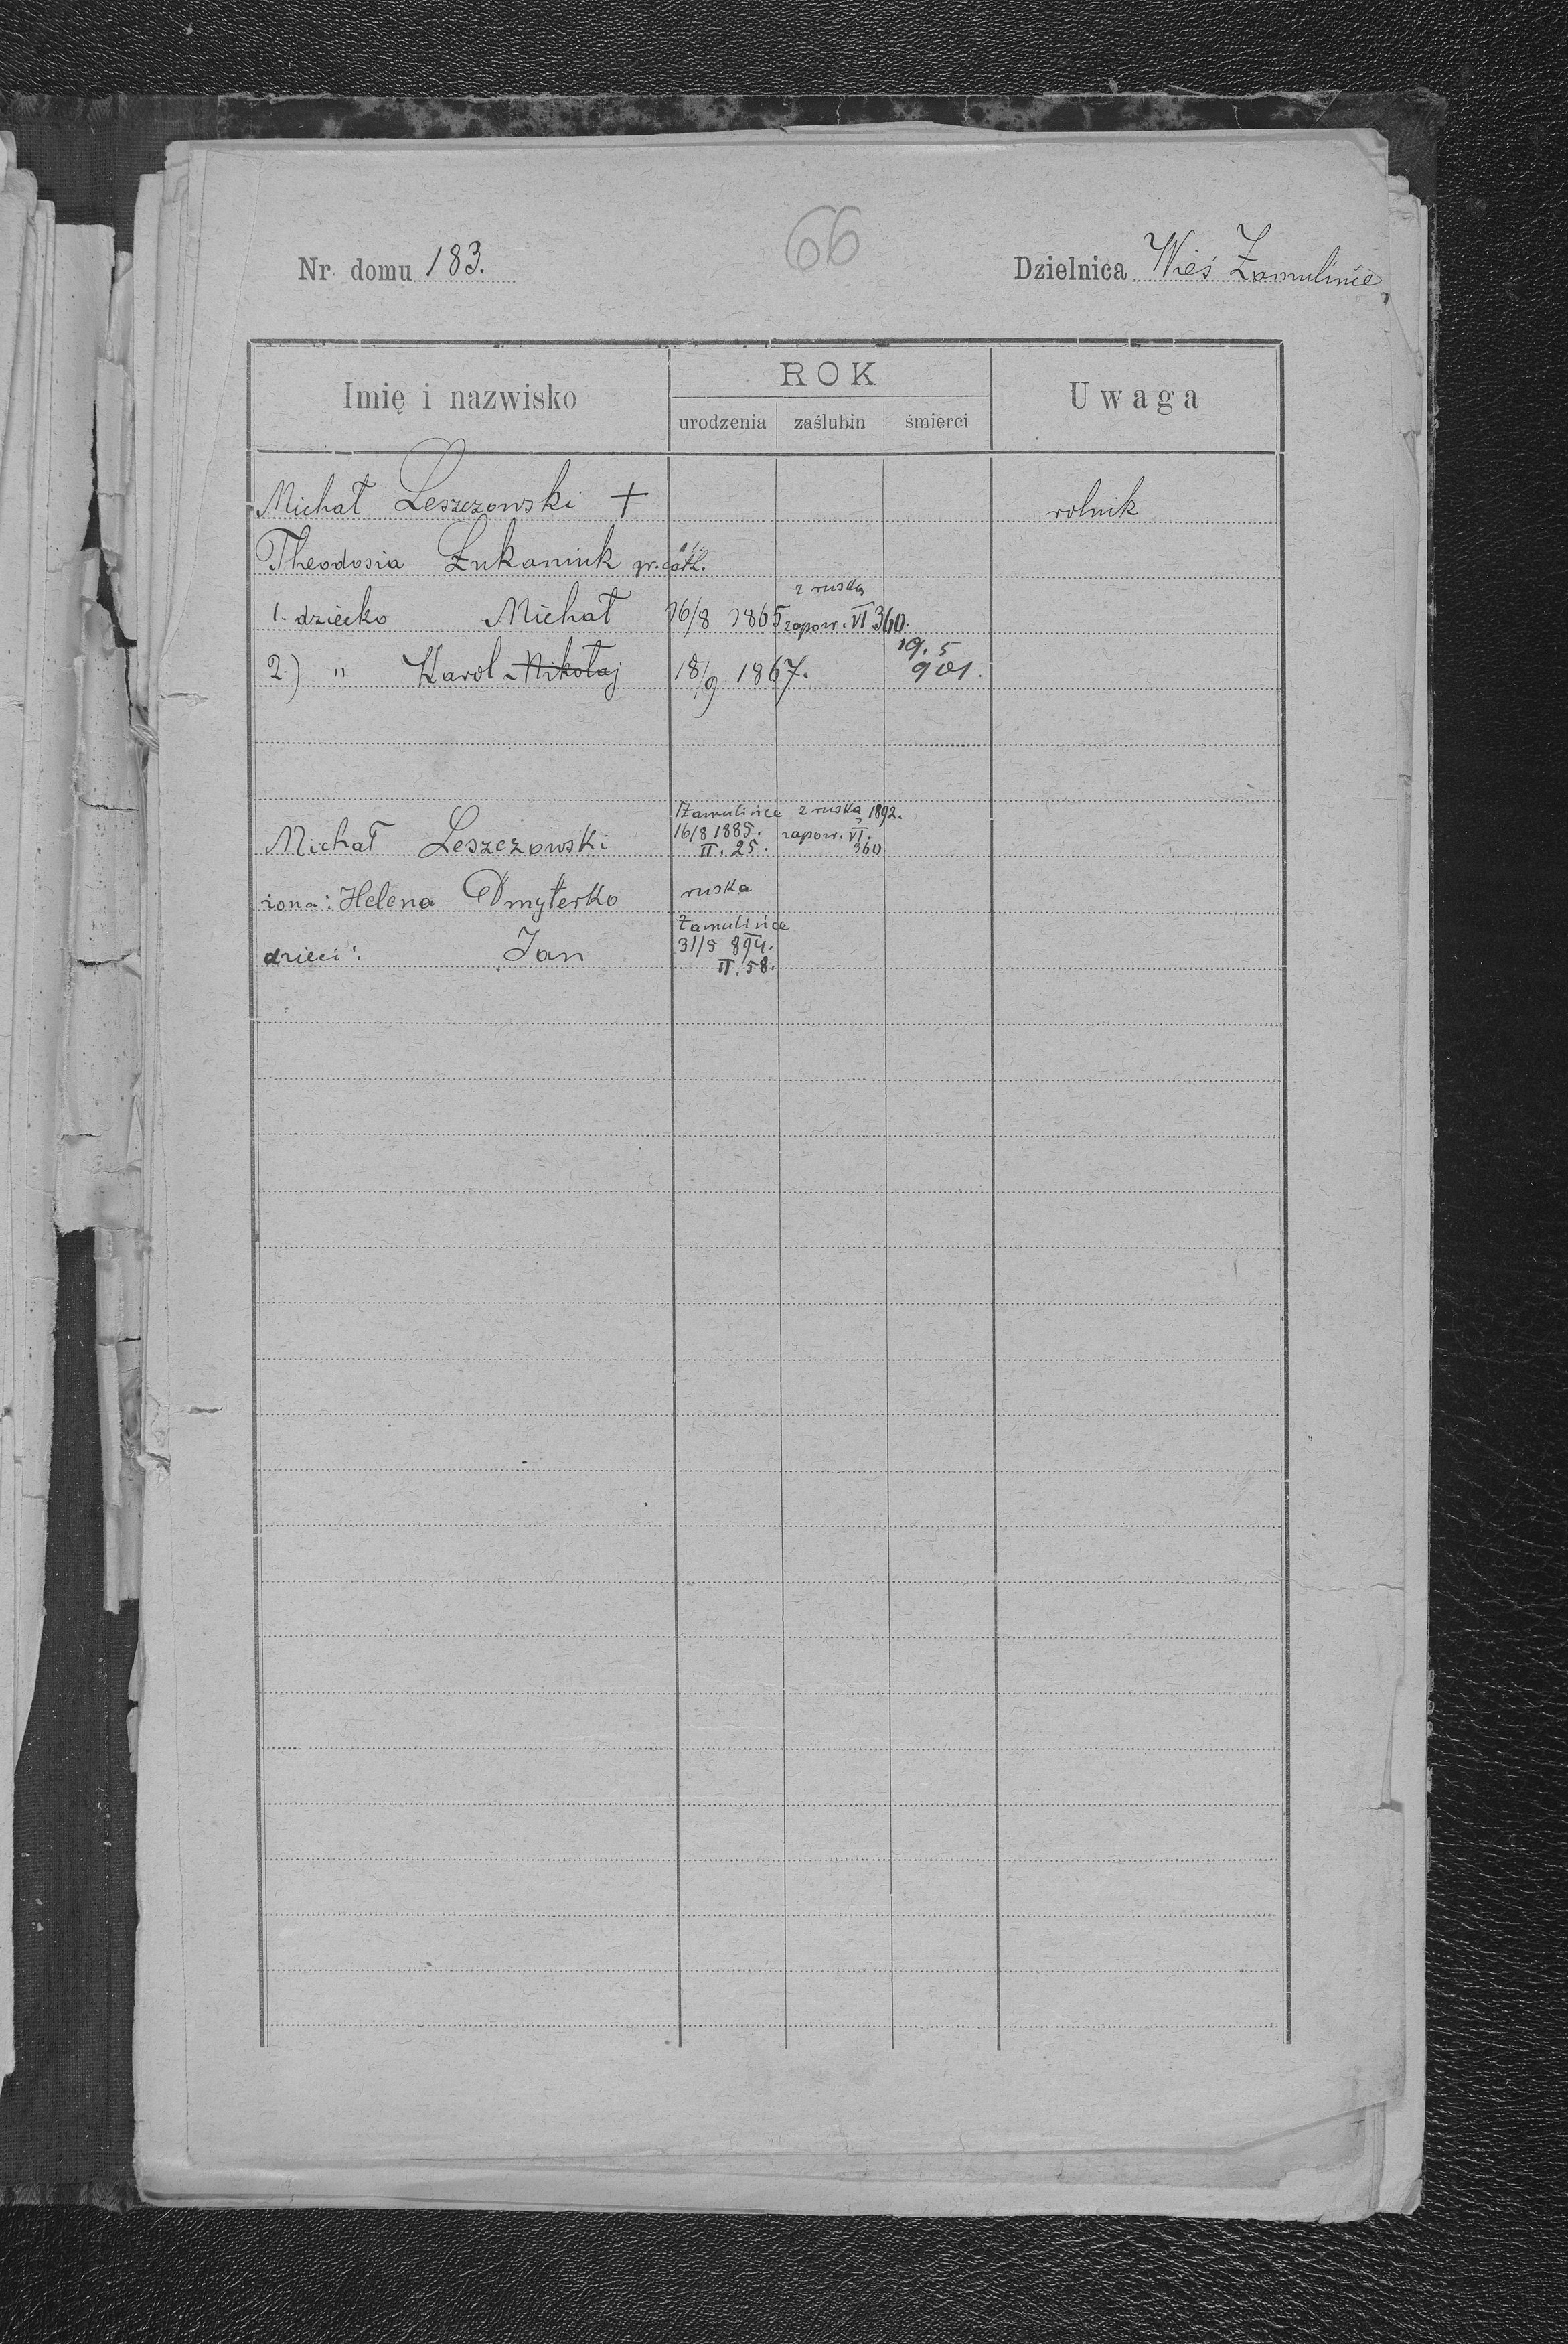 66
Nr domu 183. Dzielnica Wieś Zamulińce
Imię i nazwisko ROK Uwaga
urodzenia zaślubin śmierci
Michał Leszczowski + rolnik
Theodosia Łukaniuk gr. cath.
1. dziecko Michał 16/8 1865 z ruską zapow. VI 360.
2.) " Karol Nikołaj 18/9 1867. 19. 5 901.
Michał Leszczowski Zamulińce 16/8 1885. II. 25. z ruską 1892. zapow. VI. 360
żona: Helena Dmyterko ruska
dzieci: Jan Zamulińce 31/5 894. II. 58.